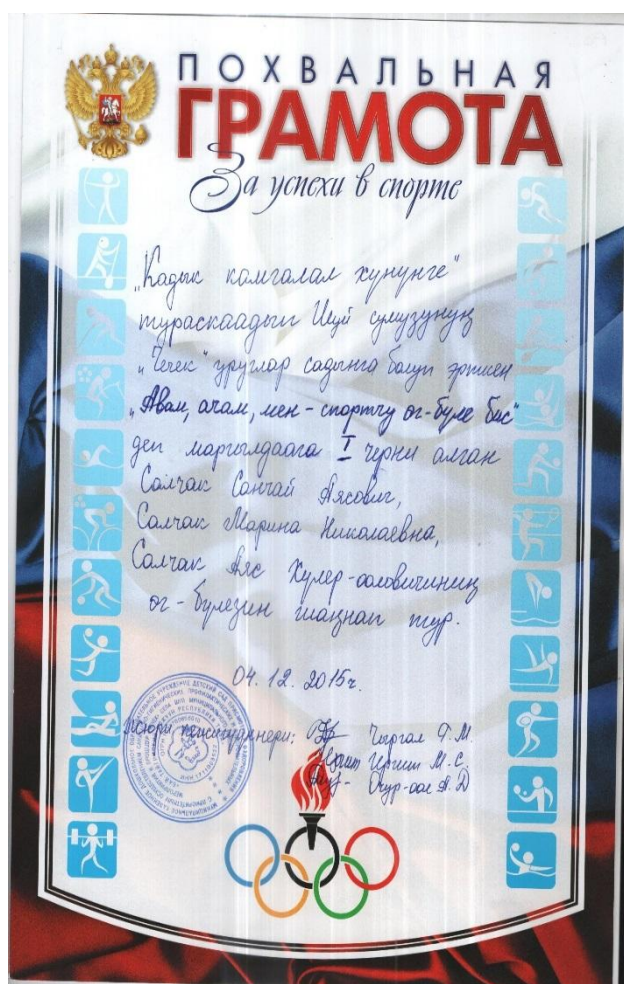 ПОХВАЛЬНАЯ
ГРАМОТА
За успехи в спорте
„Кадык камгалал хүнүнге"
тураскааткан Ишти сумузунуң
„Чечек" уруглар садынга болуп эрткен
„Авам, ачам, мен - спортчу ог-буле бис"
деп маргылдаага I черни алган
Салчак Санчай Аясович,
Салчак Марина Николаевна,
Салчак Аяс Хулер-ооловичиниң
ог-булезин шаңнап тур.
04.12.2015г.
Жюри кежигуннери: Чыргал Ф.М.
Иргит М.С.
Очур-оол А.Д